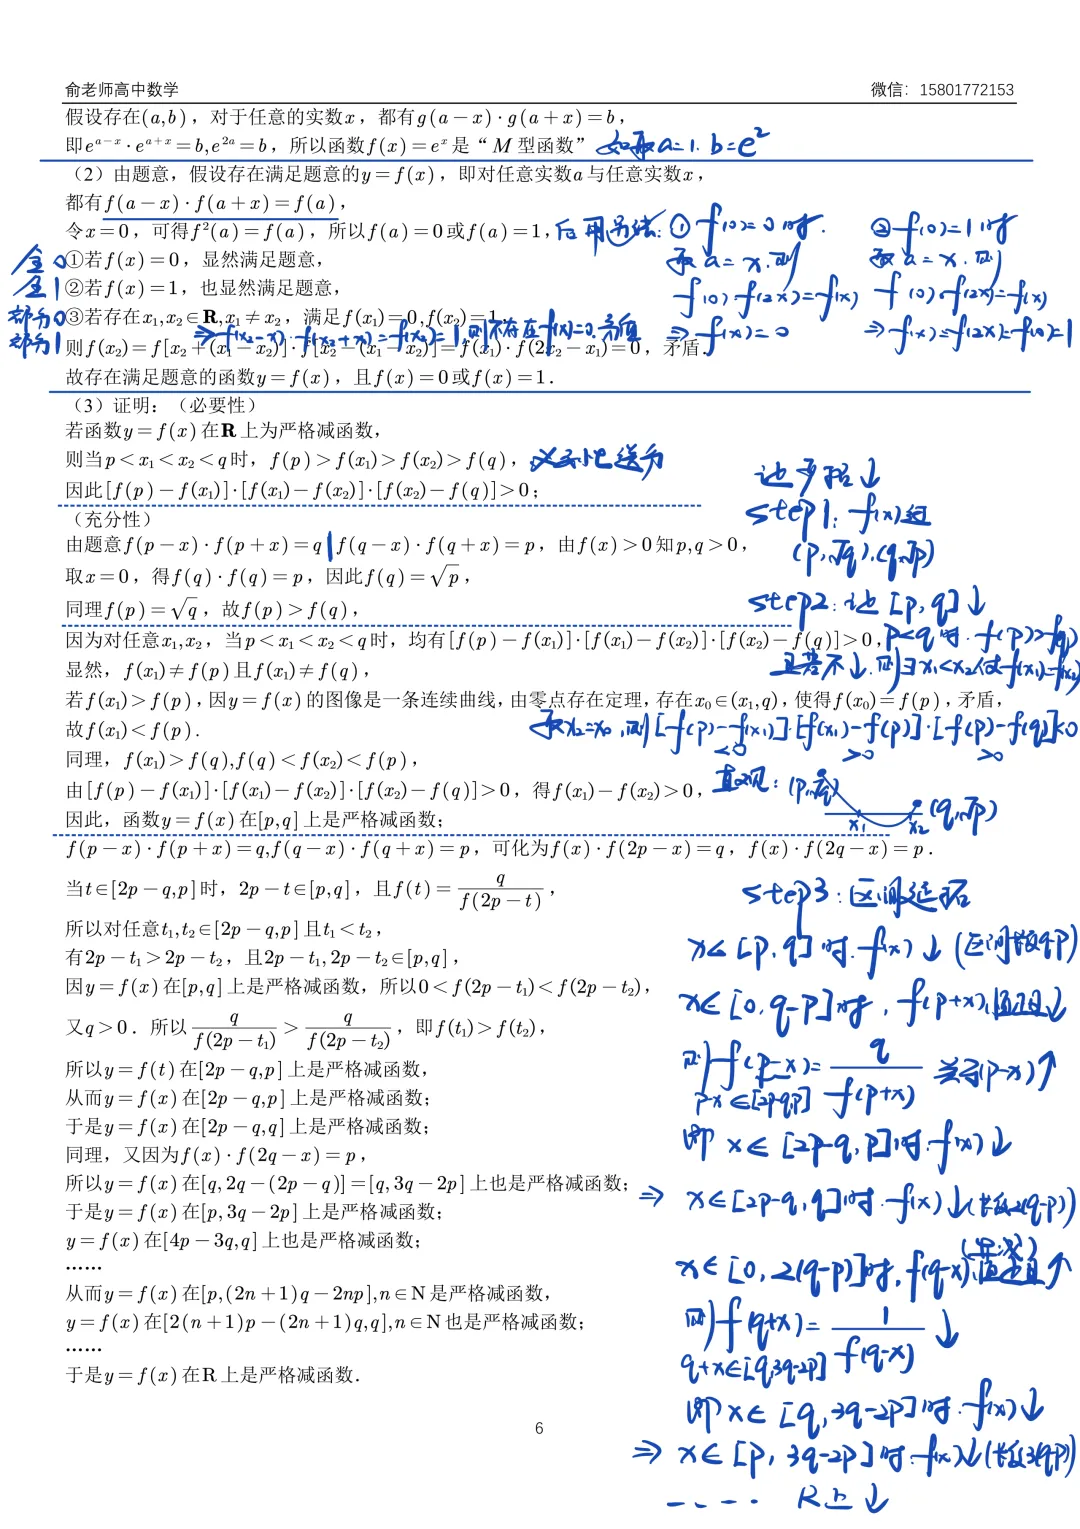 俞老师高中数学 微信：15801772153
假设存在(a,b)，对于任意的实数x，都有g(a−x)·g(a+x)=b，
即e^{a−x}·e^{a+x}=b,e^{2a}=b，所以函数f(x)=e^x是“M型函数” 如取a=1. b=e²
（2）由题意，假设存在满足题意的y=f(x)，即对任意实数a与任意实数x，
都有f(a−x)·f(a+x)=f(a)，
令x=0，可得f²(a)=f(a)，所以f(a)=0或f(a)=1，
① f(0)=0时. ② f(0)=1时
取a=x.则 取a=x.则
f(0)·f(2x)=f(x) f(0)·f(2x)=f(x)
⇒ f(x)=0 ⇒ f(x)=f(2x)=f(0)=1
全0 ①若f(x)=0，显然满足题意，
全1 ②若f(x)=1，也显然满足题意，
部分0 ③若存在x₁,x₂∈R,x₁≠x₂，满足f(x₁)=0,f(x₂)=1
部分1
则f(x₂)=f[x₂+(x₁−x₂)]·f[x₂−(x₁−x₂)]=f(x₁)·f(2x₂−x₁)=0，矛盾.
故存在满足题意的函数y=f(x)，且f(x)=0或f(x)=1.
（3）证明：（必要性）
若函数y=f(x)在R上为严格减函数，
则当p<x₁<x₂<q时，f(p)>f(x₁)>f(x₂)>f(q)，
因此[f(p)−f(x₁)]·[f(x₁)−f(x₂)]·[f(x₂)−f(q)]>0；
（充分性）
由题意f(p−x)·f(p+x)=q f(q−x)·f(q+x)=p，由f(x)>0知p,q>0，
取x=0，得f(q)·f(q)=p，因此f(q)=√p，
同理f(p)=√q，故f(p)>f(q)，
step1: f(x)过
(p,√q).(q,√p)
step2: 证[p,q]↓
p<q时. f(p)>f(q)
且若不↓.则∃x₁<x₂使f(x₁)=f(x₂)
因为对任意x₁,x₂，当p<x₁<x₂<q时，均有[f(p)−f(x₁)]·[f(x₁)−f(x₂)]·[f(x₂)−f(q)]>0，
显然，f(x₁)≠f(p)且f(x₁)≠f(q)，
若f(x₁)>f(p)，因y=f(x)的图像是一条连续曲线，由零点存在定理，存在x₀∈(x₁,q)，使得f(x₀)=f(p)，矛盾，
故f(x₁)<f(p).
取x₂=x₀,则[f(p)−f(x₁)]·[f(x₁)−f(p)]·[f(p)−f(q)]<0
<0 >0 >0
同理，f(x₁)>f(q),f(q)<f(x₂)<f(p)，
由[f(p)−f(x₁)]·[f(x₁)−f(x₂)]·[f(x₂)−f(q)]>0，得f(x₁)−f(x₂)>0，
直观: (p,√q)
x₁ x₂ (q,√p)
因此，函数y=f(x)在[p,q]上是严格减函数；
f(p−x)·f(p+x)=q,f(q−x)·f(q+x)=p，可化为f(x)·f(2p−x)=q，f(x)·f(2q−x)=p.
当t∈[2p−q,p]时，2p−t∈[p,q]，且f(t)=q/f(2p−t)，
所以对任意t₁,t₂∈[2p−q,p]且t₁<t₂，
有2p−t₁>2p−t₂，且2p−t₁,2p−t₂∈[p,q]，
因y=f(x)在[p,q]上是严格减函数，所以0<f(2p−t₁)<f(2p−t₂)，
又q>0．所以q/f(2p−t₁)>q/f(2p−t₂)，即f(t₁)>f(t₂)，
所以y=f(t)在[2p−q,p]上是严格减函数，
从而y=f(x)在[2p−q,p]上是严格减函数；
于是y=f(x)在[2p−q,q]上是严格减函数；
同理，又因为f(x)·f(2q−x)=p，
所以y=f(x)在[q,2q−(2p−q)]=[q,3q−2p]上也是严格减函数；
于是y=f(x)在[p,3q−2p]上是严格减函数；
y=f(x)在[4p−3q,q]上也是严格减函数；
……
从而y=f(x)在[p,(2n+1)q−2np],n∈N是严格减函数，
y=f(x)在[2(n+1)p−(2n+1)q,q],n∈N也是严格减函数；
……
于是y=f(x)在R上是严格减函数.
step3: 区间延拓
x∈[p,q]时.f(x)↓
x∈[0,q-p]时, f(p+x)值正且↓
则 f(p-x)=q/f(p+x) 关于(p-x)↑
p-x∈[2p-q,p]
即 x∈[2p-q,p]时.f(x)↓
⇒ x∈[2p-q,q]时.f(x)↓(长度2(q-p))
x∈[0,2(q-p)]时,f(q-x)值正且↑
则f(q+x)=1/f(q-x) ↓
q+x∈[q,3q-2p]
即x∈[q,3q-2p]时.f(x)↓
⇒ x∈[p,3q-2p]时.f(x)↓(长度3(q-p))
..... R上↓
6